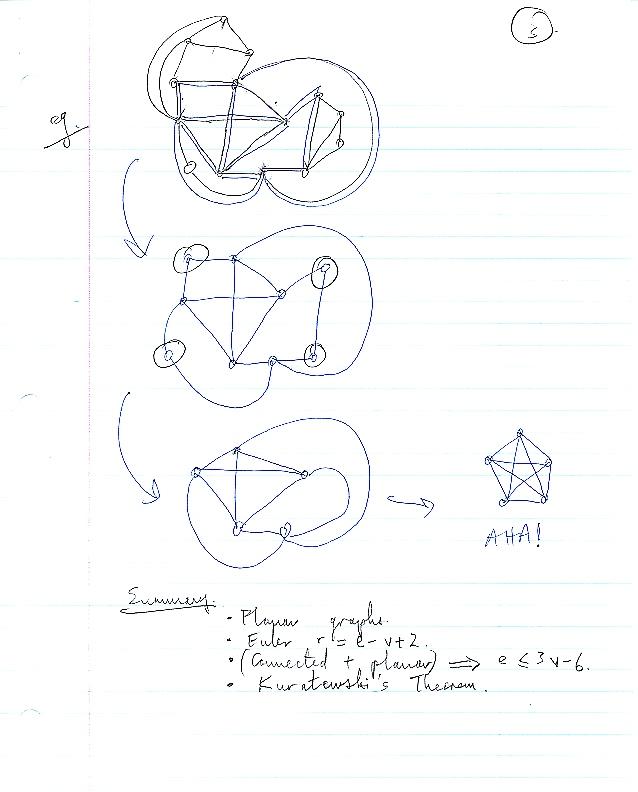 5
eg.
AHA!
Summary.
• Planar graphs.
• Euler r = e - v + 2.
• (Connected + planar) ⟹ e ≤ 3v - 6.
• Kuratowski's Theorem.